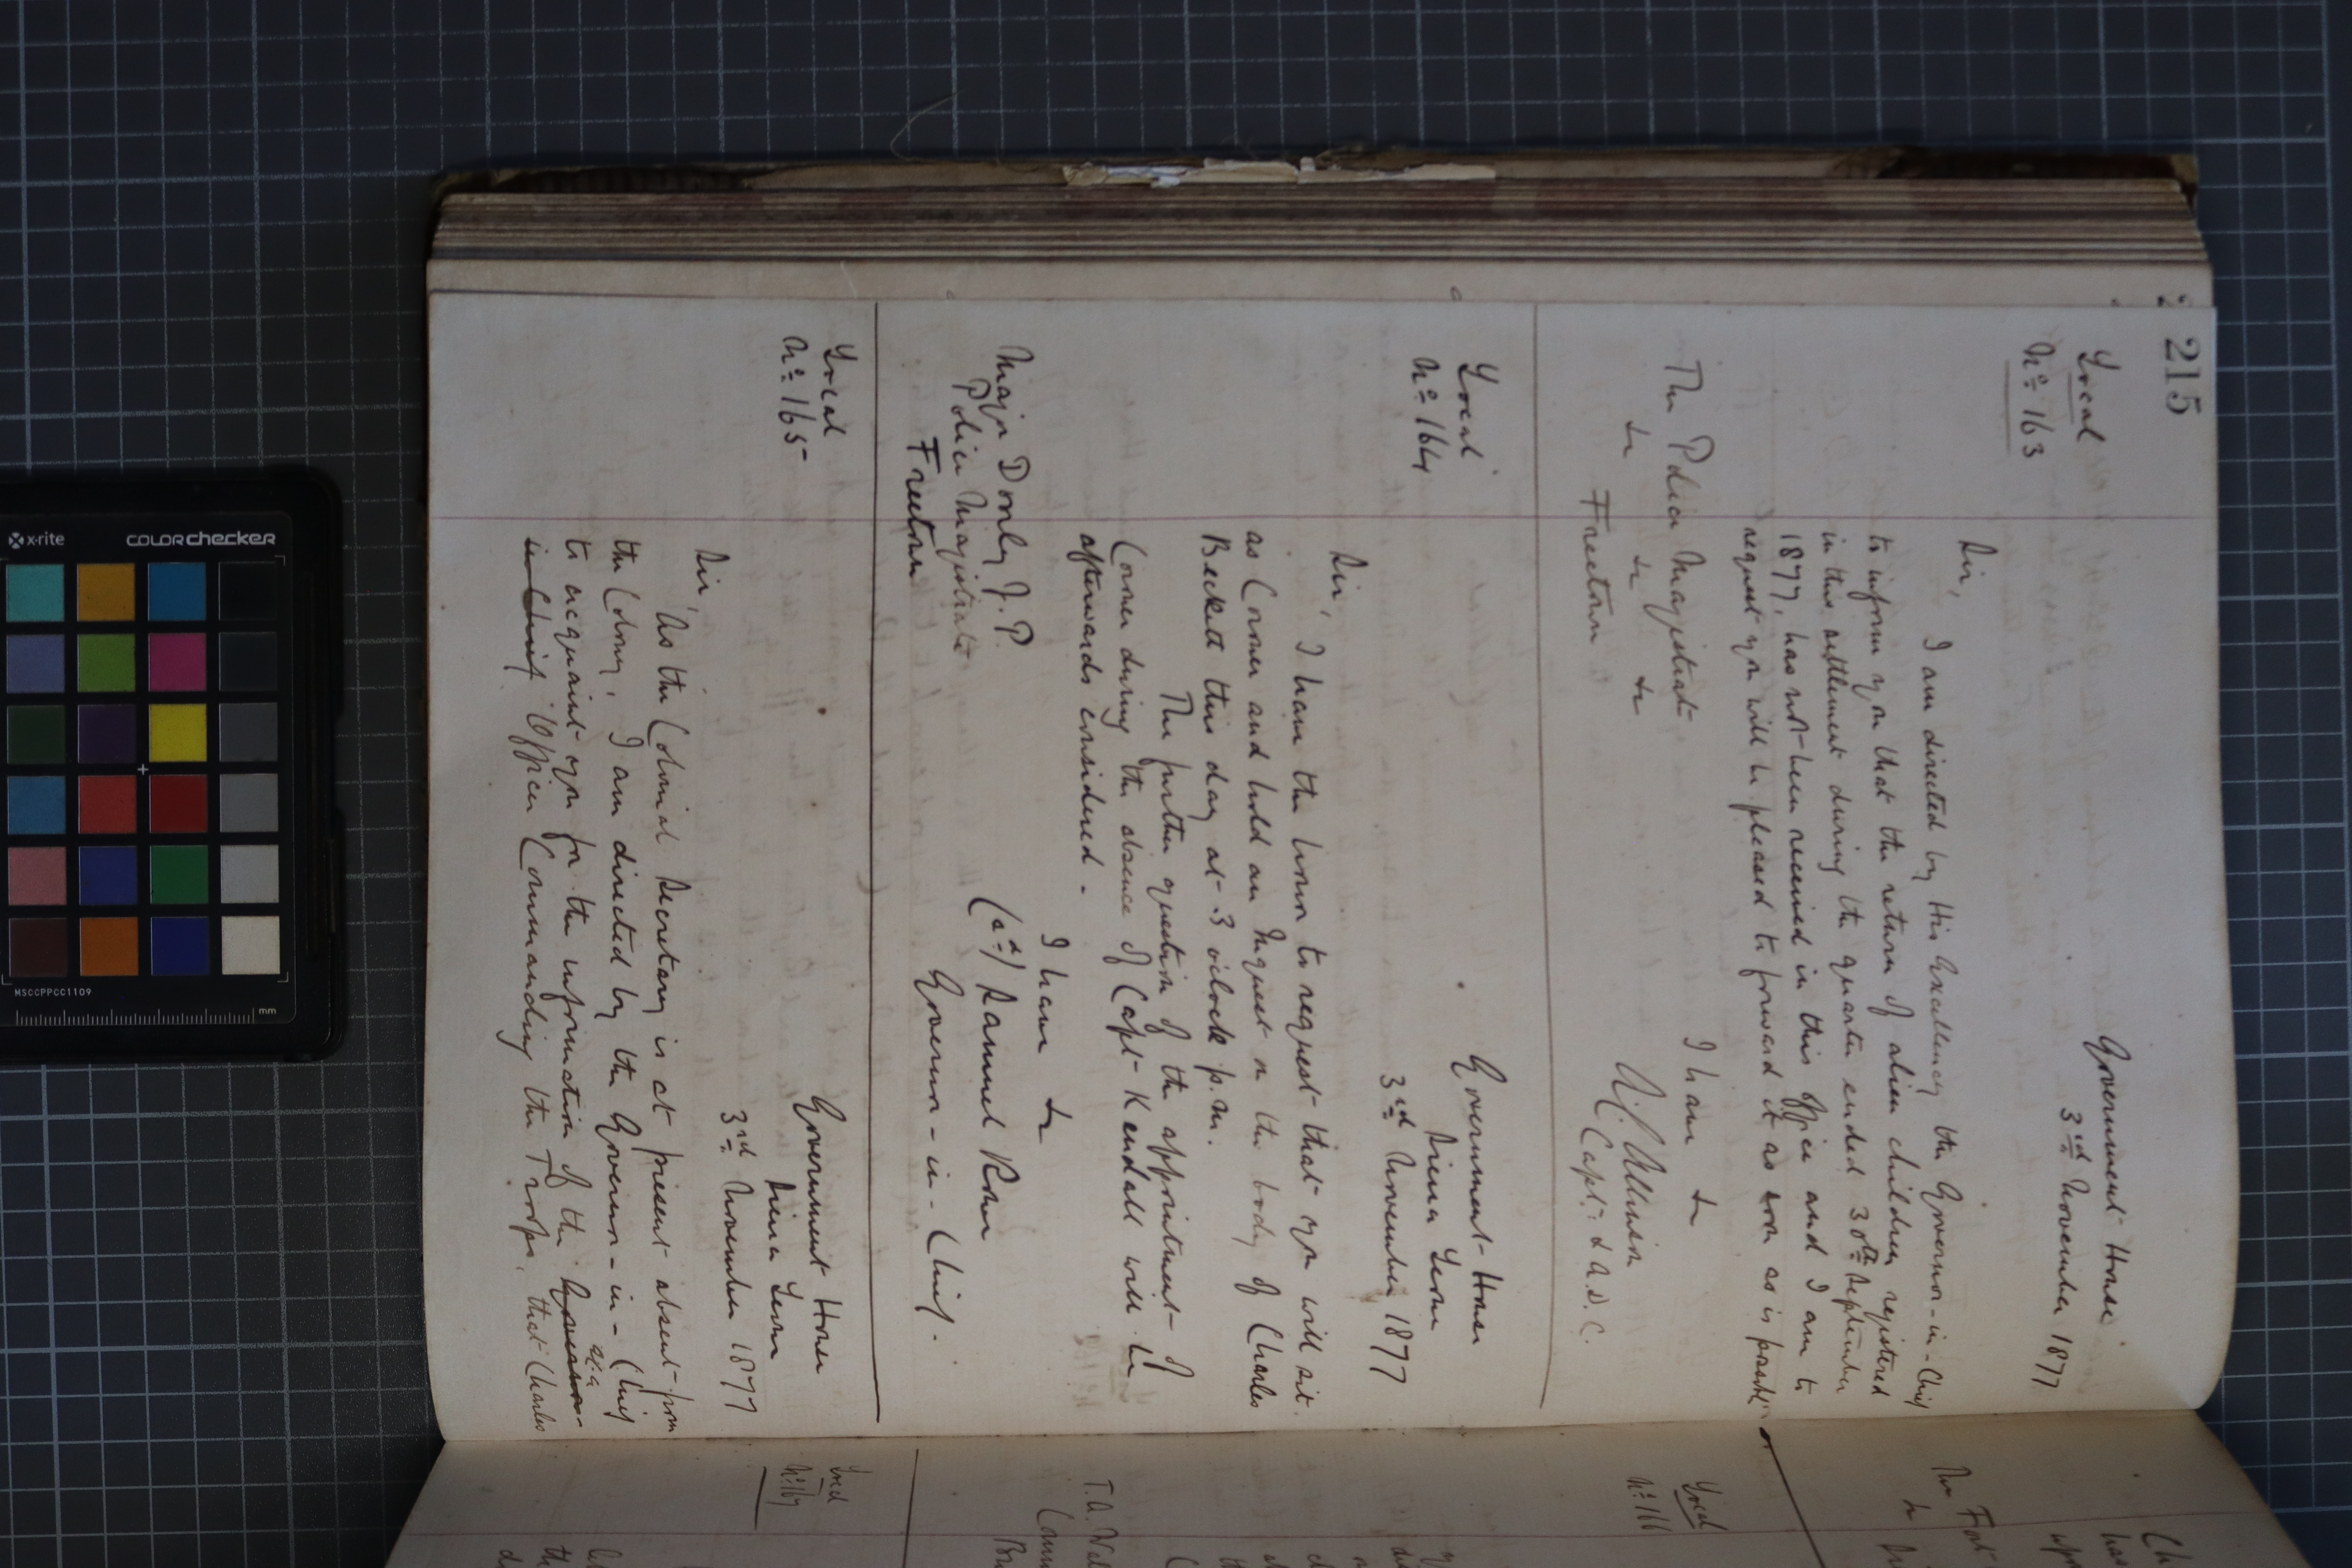 215
Local
No. 163
Government House
3rd November 1877
Sir,
I am directed by His Excellency the Governor-in-Chief
to inform you that the return of alien children registered
in this settlement during the quarter ended 30th September
1877, has not been received in this Office and I am to
request you will be pleased to forward it as soon as is possible
I have &c
Capt. & A.D.C.
The Police Magistrate
&c &c &c
Freetown
Local
No. 164
Government House
Sierra Leone
3rd November 1877
Sir,
I have the honor to request that you will sit
as Coroner and hold an Inquest on the body of Charles
Beckett this day at 3 o'clock p.m.
The further question of the appointment of
Coroner during the absence of Capt Kendall will be
afterwards considered.
I have &c
(sd) Samuel Rowe
Governor-in-Chief.
Major Dorly J.P.
Police Magistrate
Freetown
Local
No. 165
Government House
Sierra Leone
3rd November 1877
Sir,
As the Colonial Secretary is at present absent from
the Colony, I am directed by the Governor-in-Chief
to acquaint you for the information of the Governor-
in-Chief Officer Commanding the Troops, that Charles
Local
No. 166
T.A. Wall
Local
No. 167
The